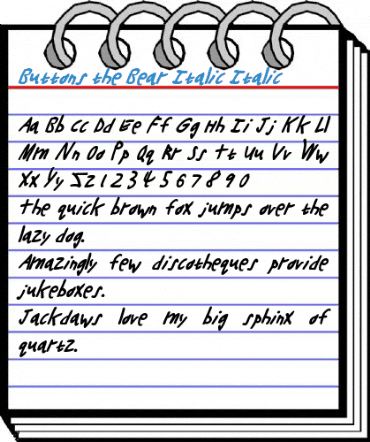 Buttons the Bear Italic Italic
Aa Bb Cc Dd Ee Ff Gg Hh Ii Jj Kk Ll
Mm Nn Oo Pp Qq Rr Ss Tt Uu Vv Ww
Xx Yy Zz 1 2 3 4 5 6 7 8 9 0
the quick brown fox jumps over the
lazy dog.
Amazingly few discotheques provide
jukeboxes.
Jackdaws love my big sphinx of
quartz.